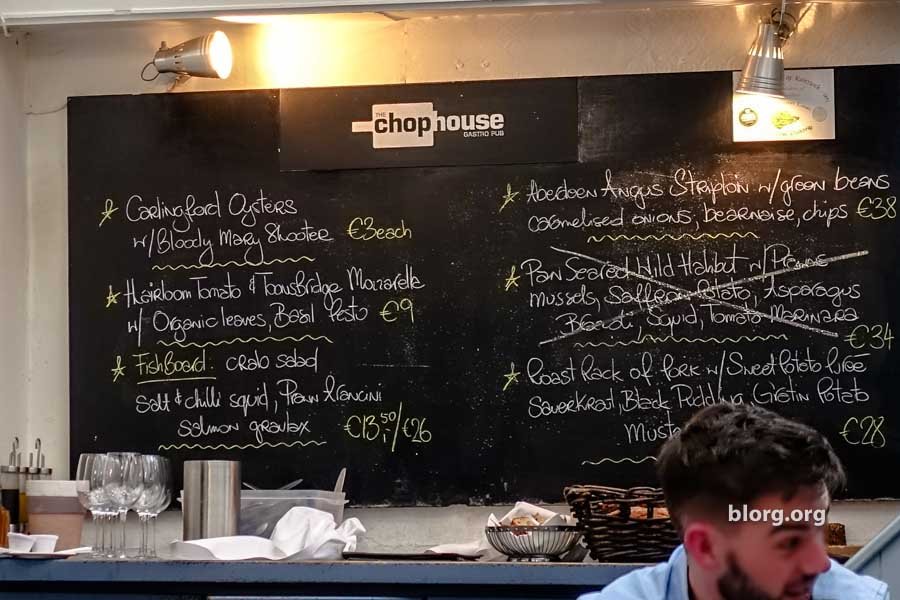 THE
chophouse
GASTRO PUB
Carlingford Oysters
w/Bloody Mary Shooter €3each
Heirloom Tomato & Toonsbridge Mozzarella
w/ Organic leaves, Basil Pesto €9
FishBoard: crab salad
Salt & chilli squid, Prawn Arancini
Salmon gravlax €13,50/€26
Aberdeen Angus Striploin w/green beans
caramelised onions, bearnaise, chips €38
Pan Seared Wild Halibut w/
mussels, Saffron Potato, Asparagus
Squid, Tomato Marinara
€34
Roast Rack of Pork w/Sweet Potato Purée
Sauerkraut, Black Pudding, Gratin Potato
€28
blorg.org